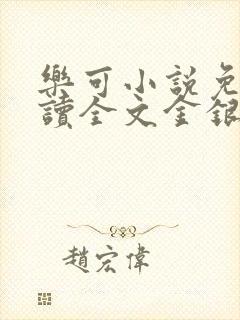 樂可小說免
讀全文金銀
趙宏偉